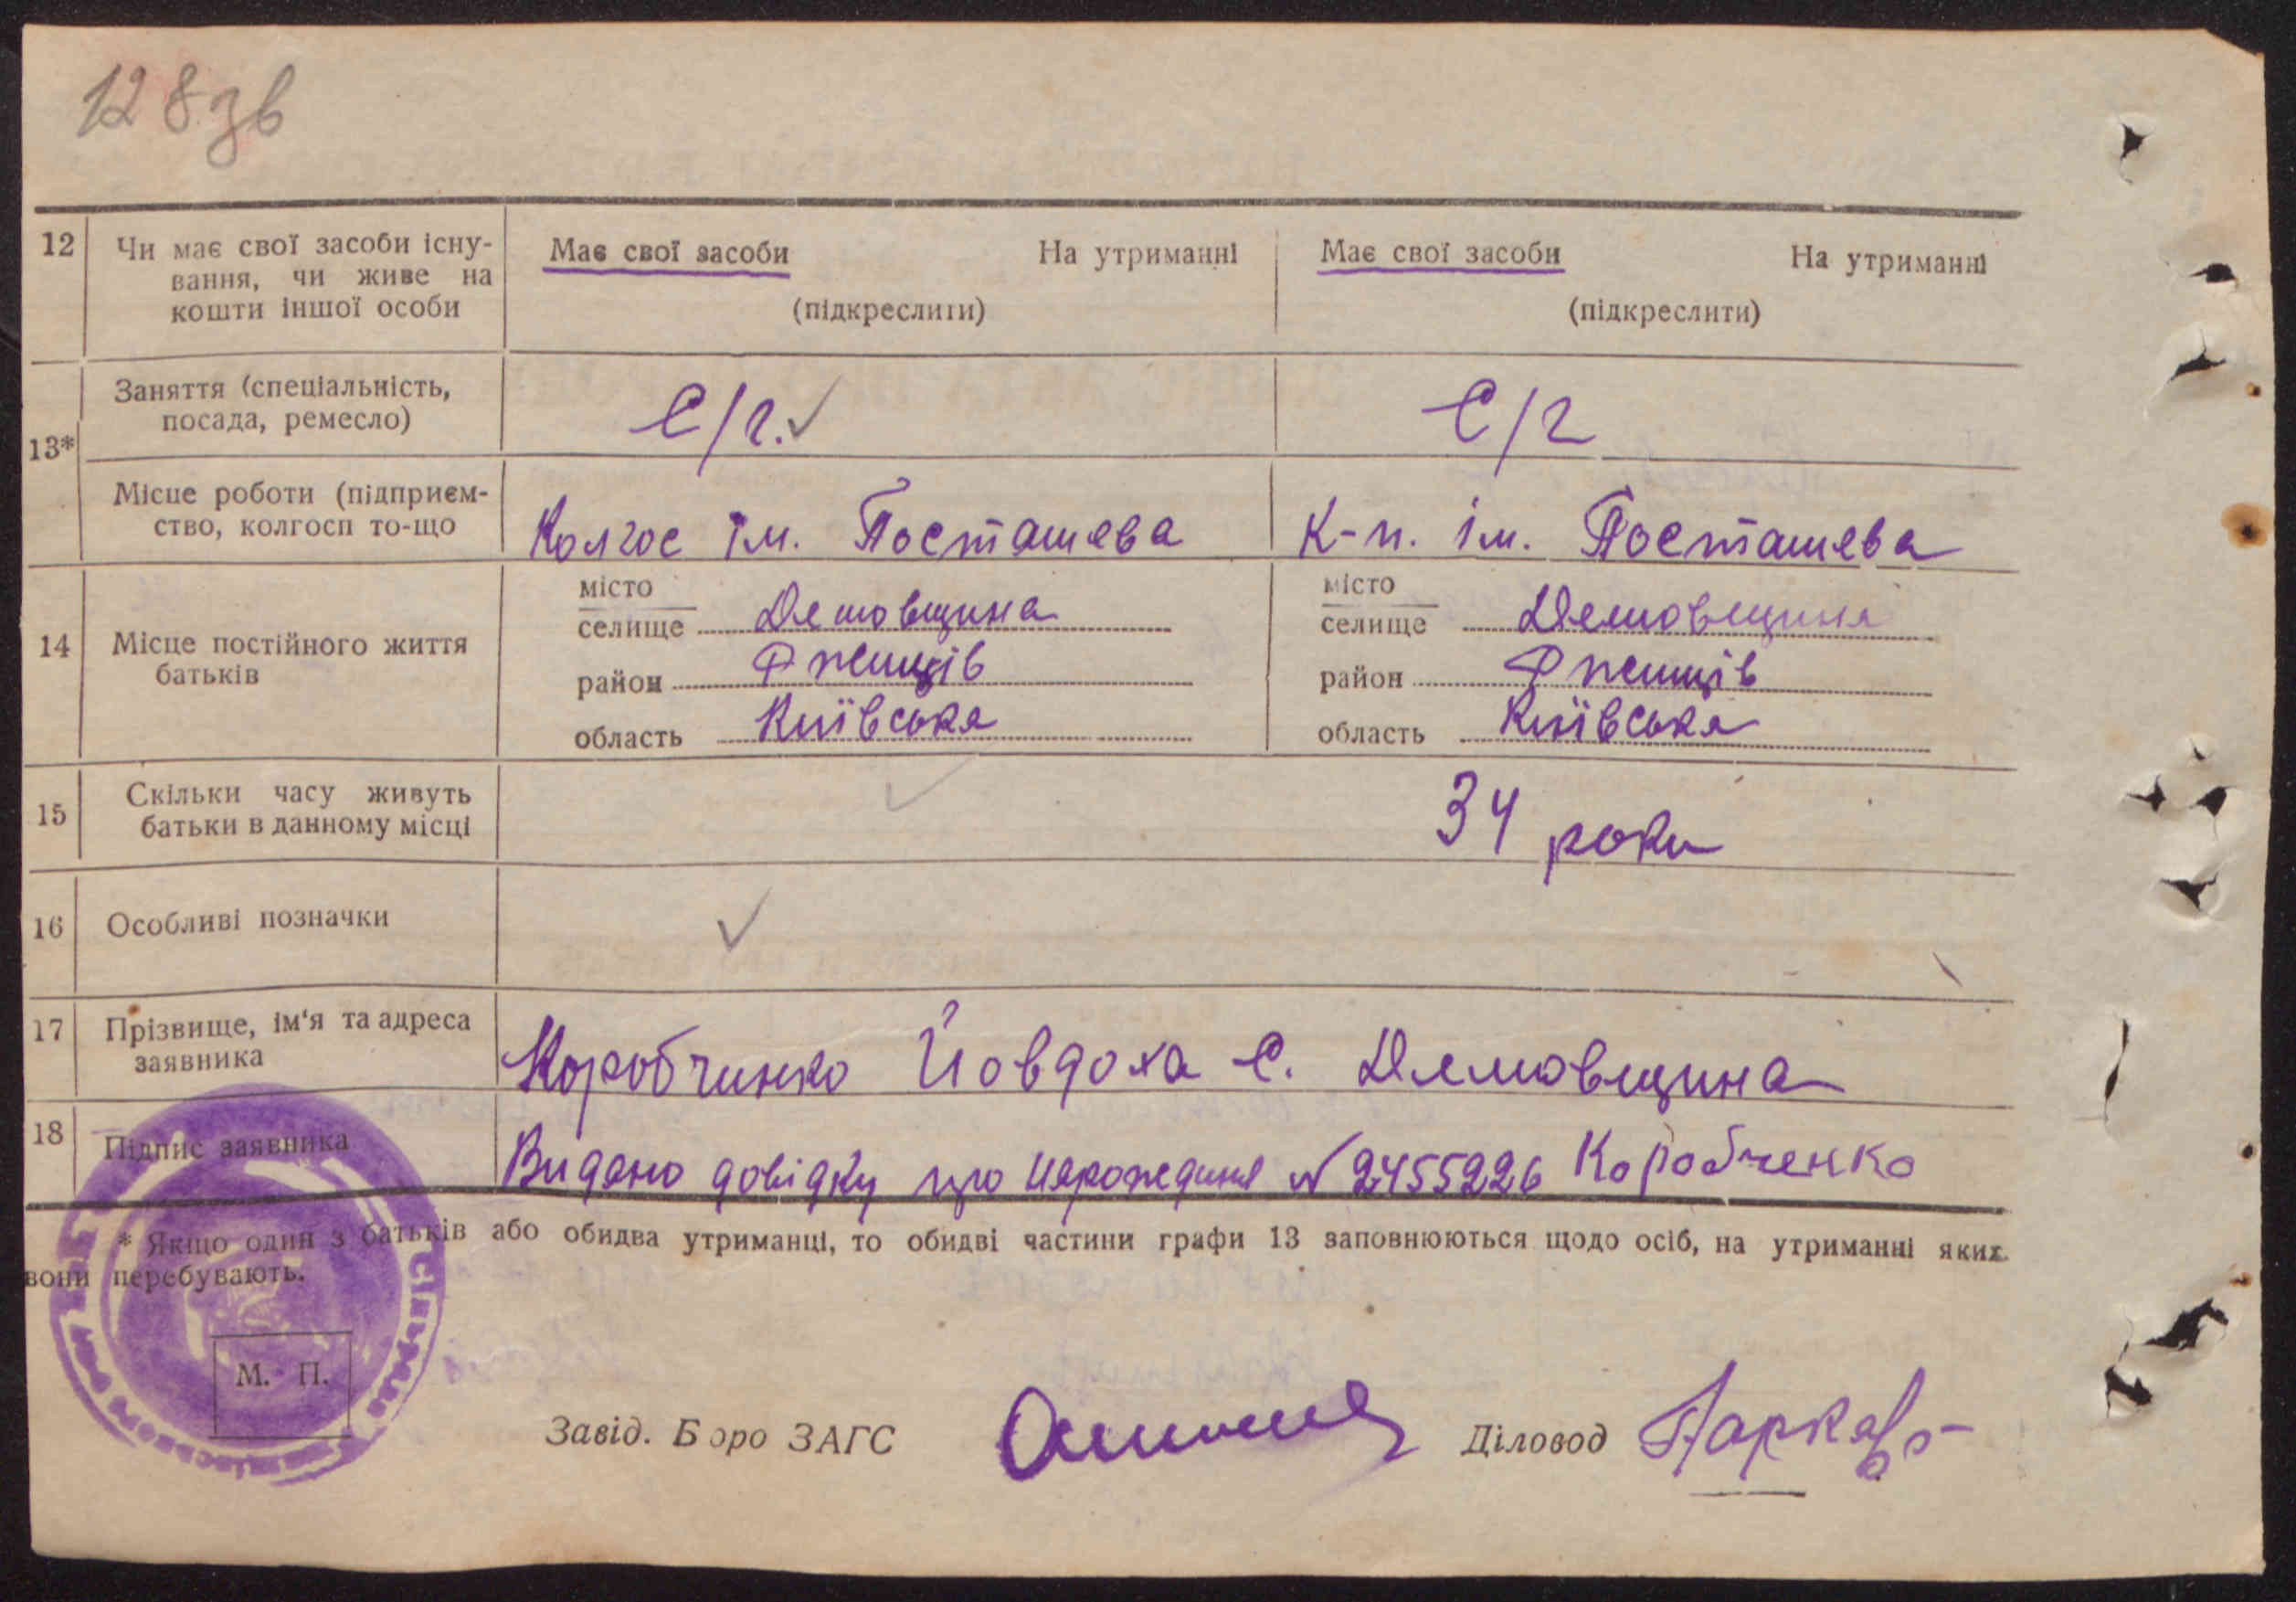 128 зв
12 Чи має свої засоби існу- Має свої засоби На утриманні Має свої засоби На утриманні
вання, чи живе на
кошти іншої особи (підкреслити) (підкреслити)
Заняття (спеціальність, С/г. С/г
посада, ремесло)
13*
Місце роботи (підприєм-
ство, колгосп то-що Колгос ім. Посташева К-п. ім. Посташева
місто місто
селище Демовщина селище Демовщина
14 Місце постійного життя
батьків район Ржищів район Ржищів
область Київська область Київська
Скільки часу живуть
15 батьки в данному місці 34 роки
16 Особливі позначки
17 Прізвище, ім'я та адреса
заявника Коробчинко Йовдоха С. Демовщина
18 Підпис заявника Видано довідку про народження № 2455226 Коробченко
* Якщо один з батьків або обидва утриманці, то обидві частини графи 13 заповнюються щодо осіб, на утриманні яких
вони перебувають.
М. П.
Завід. Бюро ЗАГС Діловод